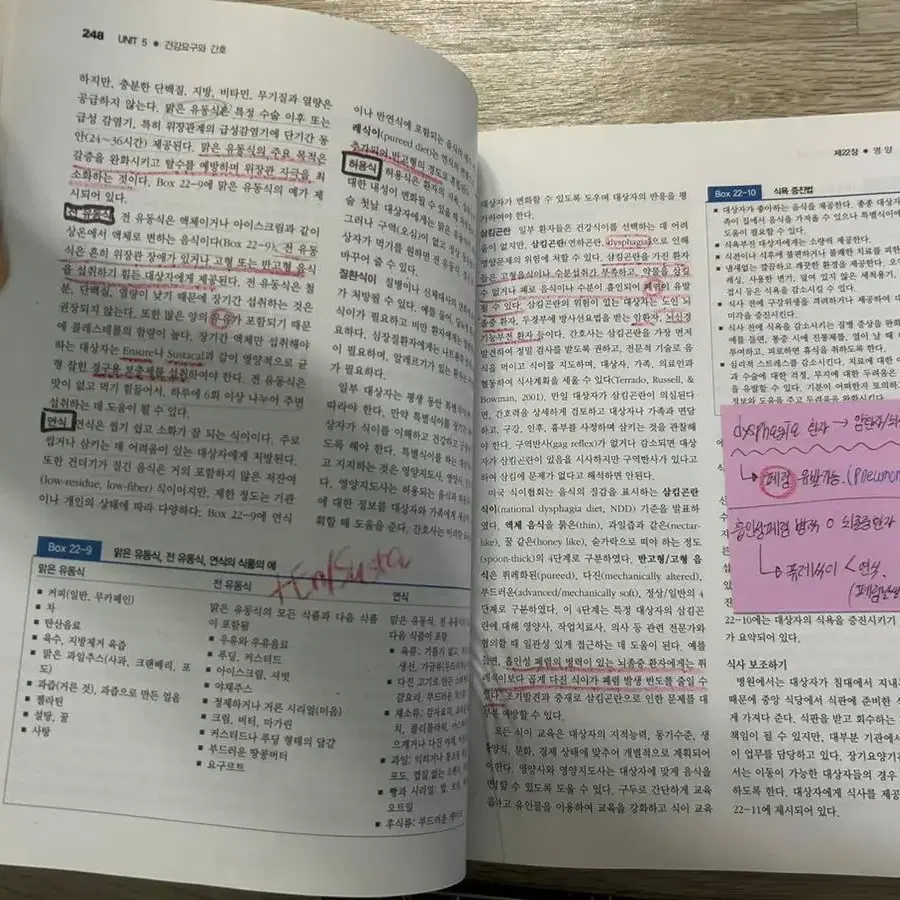 248 UNIT 5 ● 건강요구와 간호
하지만, 충분한 단백질, 지방, 비타민, 무기질과 열량은
공급하지 않는다. 맑은 유동식은 특정 수술 이후 또는
급성 감염기, 특히 위장관계의 급성감염기에 단기간 동
안(24~36시간) 제공된다. 맑은 유동식의 주요 목적은
갈증을 완화시키고 탈수를 예방하며 위장관 자극을 최
소화하는 것이다. Box 22-9에 맑은 유동식의 예가 제
시되어 있다.
전 유동식 전 유동식은 액체이거나 아이스크림과 같이
상온에서 액체로 변하는 음식이다(Box 22-9). 전 유동
식은 흔히 위장관 장애가 있거나 고형 또는 반고형 음식
을 섭취하기 힘든 대상자에게 제공된다. 전 유동식은 철
분, 단백질, 열량이 낮기 때문에 장기간 섭취하는 것은
권장되지 않는다. 또한 많은 양의 우유가 포함되기 때문
에 콜레스테롤의 함량이 높다. 장기간 액체만 섭취해야
하는 대상자는 Ensure나 Sustacal과 같이 영양적으로 균
형 잡힌 경구용 보충제를 섭취하여야 한다. 전 유동식은
맛이 없고 먹기 힘들어서, 하루에 6회 이상 나누어 주면
섭취하는 데 도움이 될 수 있다.
연식 연식은 씹기 쉽고 소화가 잘 되는 식이이다. 주로
씹거나 삼키는 데 어려움이 있는 대상자에게 처방된다.
또한 건더기가 질긴 음식은 거의 포함하지 않은 저잔여
(low-residue, low-fiber) 식이이지만, 제한 정도는 기관
이나 개인의 상태에 따라 다양하다. Box 22-9에 연식
이나 반연식에 포함되는 음식의
레식이(pureed diet)는 연식의
추가되어 반고형의 정도로
허용식 허용식은 환자의 식욕,
대한 내성이 변화할 수 있을 때
술 첫날 대상자에게는 맑은
그러나 구역(오심)이 없고 정상
상자가 먹기를 원하면 전 유동식,
바꾸어 줄 수 있다.
질환식이 질병이나 신체대사의
가 처방될 수 있다. 예를 들어,
식이가 필요하고 비만 환자에게는
요하다. 심장질환자에게는 나트륨
이 필요하며, 알레르기가 있는
이 필요하다.
일부 대상자는 평생 동안 특별식이
따라야 한다. 만약 특별식이를
자가 식이를 이해하고 건강하고
도록 해야 한다. 특별식이를 하는
고 지지하는 것은 영양지도사,
다. 영양지도사는 허용되는 음식과
에 대한 정보를 대상자와 가족에게
획할 때 도움을 준다. 간호사는 이러한
Box 22-9 맑은 유동식, 전 유동식, 연식의 식품의 예
맑은 유동식
■ 커피(일반, 무카페인)
■ 차
■ 탄산음료
■ 육수, 지방제거 육즙
■ 맑은 과일주스(사과, 크랜베리, 포
도)
■ 과즙(거른 것), 과즙으로 만든 얼음
■ 젤라틴
■ 설탕, 꿀
■ 사탕
전 유동식
맑은 유동식의 모든 식품과 다음 식품
이 포함됨
■ 우유와 우유음료
■ 푸딩, 커스터드
■ 아이스크림, 셔벗
■ 야채주스
■ 정제하거나 거른 시리얼(미음)
■ 크림, 버터, 마가린
■ 커스터드나 푸딩 형태의 달걀
■ 부드러운 땅콩버터
■ 요구르트
연식
맑은 유동식, 전 유동식,
다음 식품이 포함
■ 육류: 기름기 없고,
생선, 가금류
■ 다진 고기로 만든
■ 채소류: 감자요리,
■ 과일: 익히거나
포도, 껍질 없는
■ 빵과 시리얼:
오트밀
■ 후식류: 부드러운
제22장 ● 영양
대상자가 변화할 수 있도록 도우며 대상자의 반응을 평
가하여야 한다.
삼킴곤란 일부 환자들은 건강식이를 선택하는 데 어려
움이 없지만, 삼킴곤란(연하곤란, dysphagia)으로 인해
영양문제의 위험에 처할 수 있다. 삼킴곤란을 가진 환자
들은 고형음식이나, 수분섭취가 부족하고, 약물을 삼킬
수 없거나 폐로 음식이나 수분이 흡인되어 폐렴이 유발
될 수 있다. 삼킴곤란의 위험이 있는 대상자는 노인 뇌
졸중 환자, 두경부에 방사선요법을 받는 암환자, 뇌신경
기능부전 환자 등이다. 간호사는 삼킴곤란을 가장 먼저
발견하여 정밀 검사를 받도록 권하고, 전문적 기술로 음
식을 먹이고 식이를 지도하며, 대상자, 가족, 의료인과
협동하여 식사계획을 세울 수 있다(Terrado, Russell, &
Bowman, 2001). 만일 대상자가 삼킴곤란이 의심된다
면, 간호력을 상세하게 검토하고 대상자나 가족과 면담
하고, 구강, 인후, 흉부를 사정하며 삼키는 것을 관찰해
야 한다. 구역반사(gag reflex)가 없거나 감소되면 대상
자가 삼킴곤란이 있음을 시사하지만 구역반사가 있다고
하여 삼킴에 문제가 없다고 해석하면 안된다.
미국 식이협회는 음식의 질감을 표시하는 삼킴곤란
식이(national dysphagia diet, NDD) 기준을 발표하였
다. 액체 음식을 묽은(thin), 과일즙과 같은(nectar-
like), 꿀 같은(honey like), 숟가락으로 떠야 하는 정도
(spoon-thick)의 4단계로 구분하였다. 반고형/고형 음
식은 퓌레화된(pureed), 다진(mechanically altered),
부드러운(advanced/mechanically soft), 정상/일반의 4
단계로 구분하였다. 이 4단계는 특정 대상자의 삼킴곤
란에 대해 영양사, 작업치료사, 의사 등 관련 전문가와
협의할 때 일관성 있게 접근하는 데 도움이 된다. 예를
들면, 흡인성 폐렴의 병력이 있는 뇌졸중 환자에게는 퓌
레식이보다 곱게 다진 식이가 폐렴 발생 빈도를 줄일 수
있다. 조기발견과 중재로 삼킴곤란으로 인한 문제를 대
부분 예방할 수 있다.
모든 식이 교육은 대상자의 지적능력, 동기수준, 생
활양식, 문화, 경제 상태에 맞추어 개별적으로 계획되어
야 한다. 영양사와 영양지도사는 대상자에 맞게 음식을
변형할 수 있도록 도울 수 있다. 구두로 간단하게 교육
하고 유인물을 이용하여 교육을 강화하고 식이 교육
Box 22-10 식욕 증진법
■ 대상자가 좋아하는 음식을 제공한다. 종종 대상자
족이 집에서 음식을 가져올 수 있으나 특별식이에
도움이 필요할 수 있다.
■ 식욕부진 대상자에게는 소량씩 제공한다.
■ 식전이나 식후에 불편하거나 불쾌한 치료를 피한
■ 냄새없는 깔끔하고 깨끗한 환경을 제공한다.
■ 식사 전에 구강위생을 격려하거나 제공하여
미각을 증진시킨다.
■ 식사 전에 식욕을 감소시키는 질병 증상을 완화
예를 들면, 통증 시에 진통제를, 열이 날 때
투여하고, 피로하면 휴식을 취하도록 한다.
■ 심리적 스트레스를 감소시킨다.
dysphagia 환자 → 암환자/뇌
↳ 폐렴 유발가능. (Pneumon
흡인성폐렴 병력 O 뇌졸중환자
↳ 퓨레식이 < 연식.
22-10에는 대상자의 식욕을 증진시키기
가 요약되어 있다.
식사 보조하기
병원에서는 대상자가 침대에서 지내
때문에 중앙 식당에서 식판에 준비한
게 가져다 준다. 식판을 받고 회수하는
책임이 될 수 있지만, 대부분 기관에서
이 업무를 담당하고 있다. 장기요양기
서는 이동이 가능한 대상자들의 경우
하도록 한다. 대상자에게 식사를 제공
22-11에 제시되어 있다.